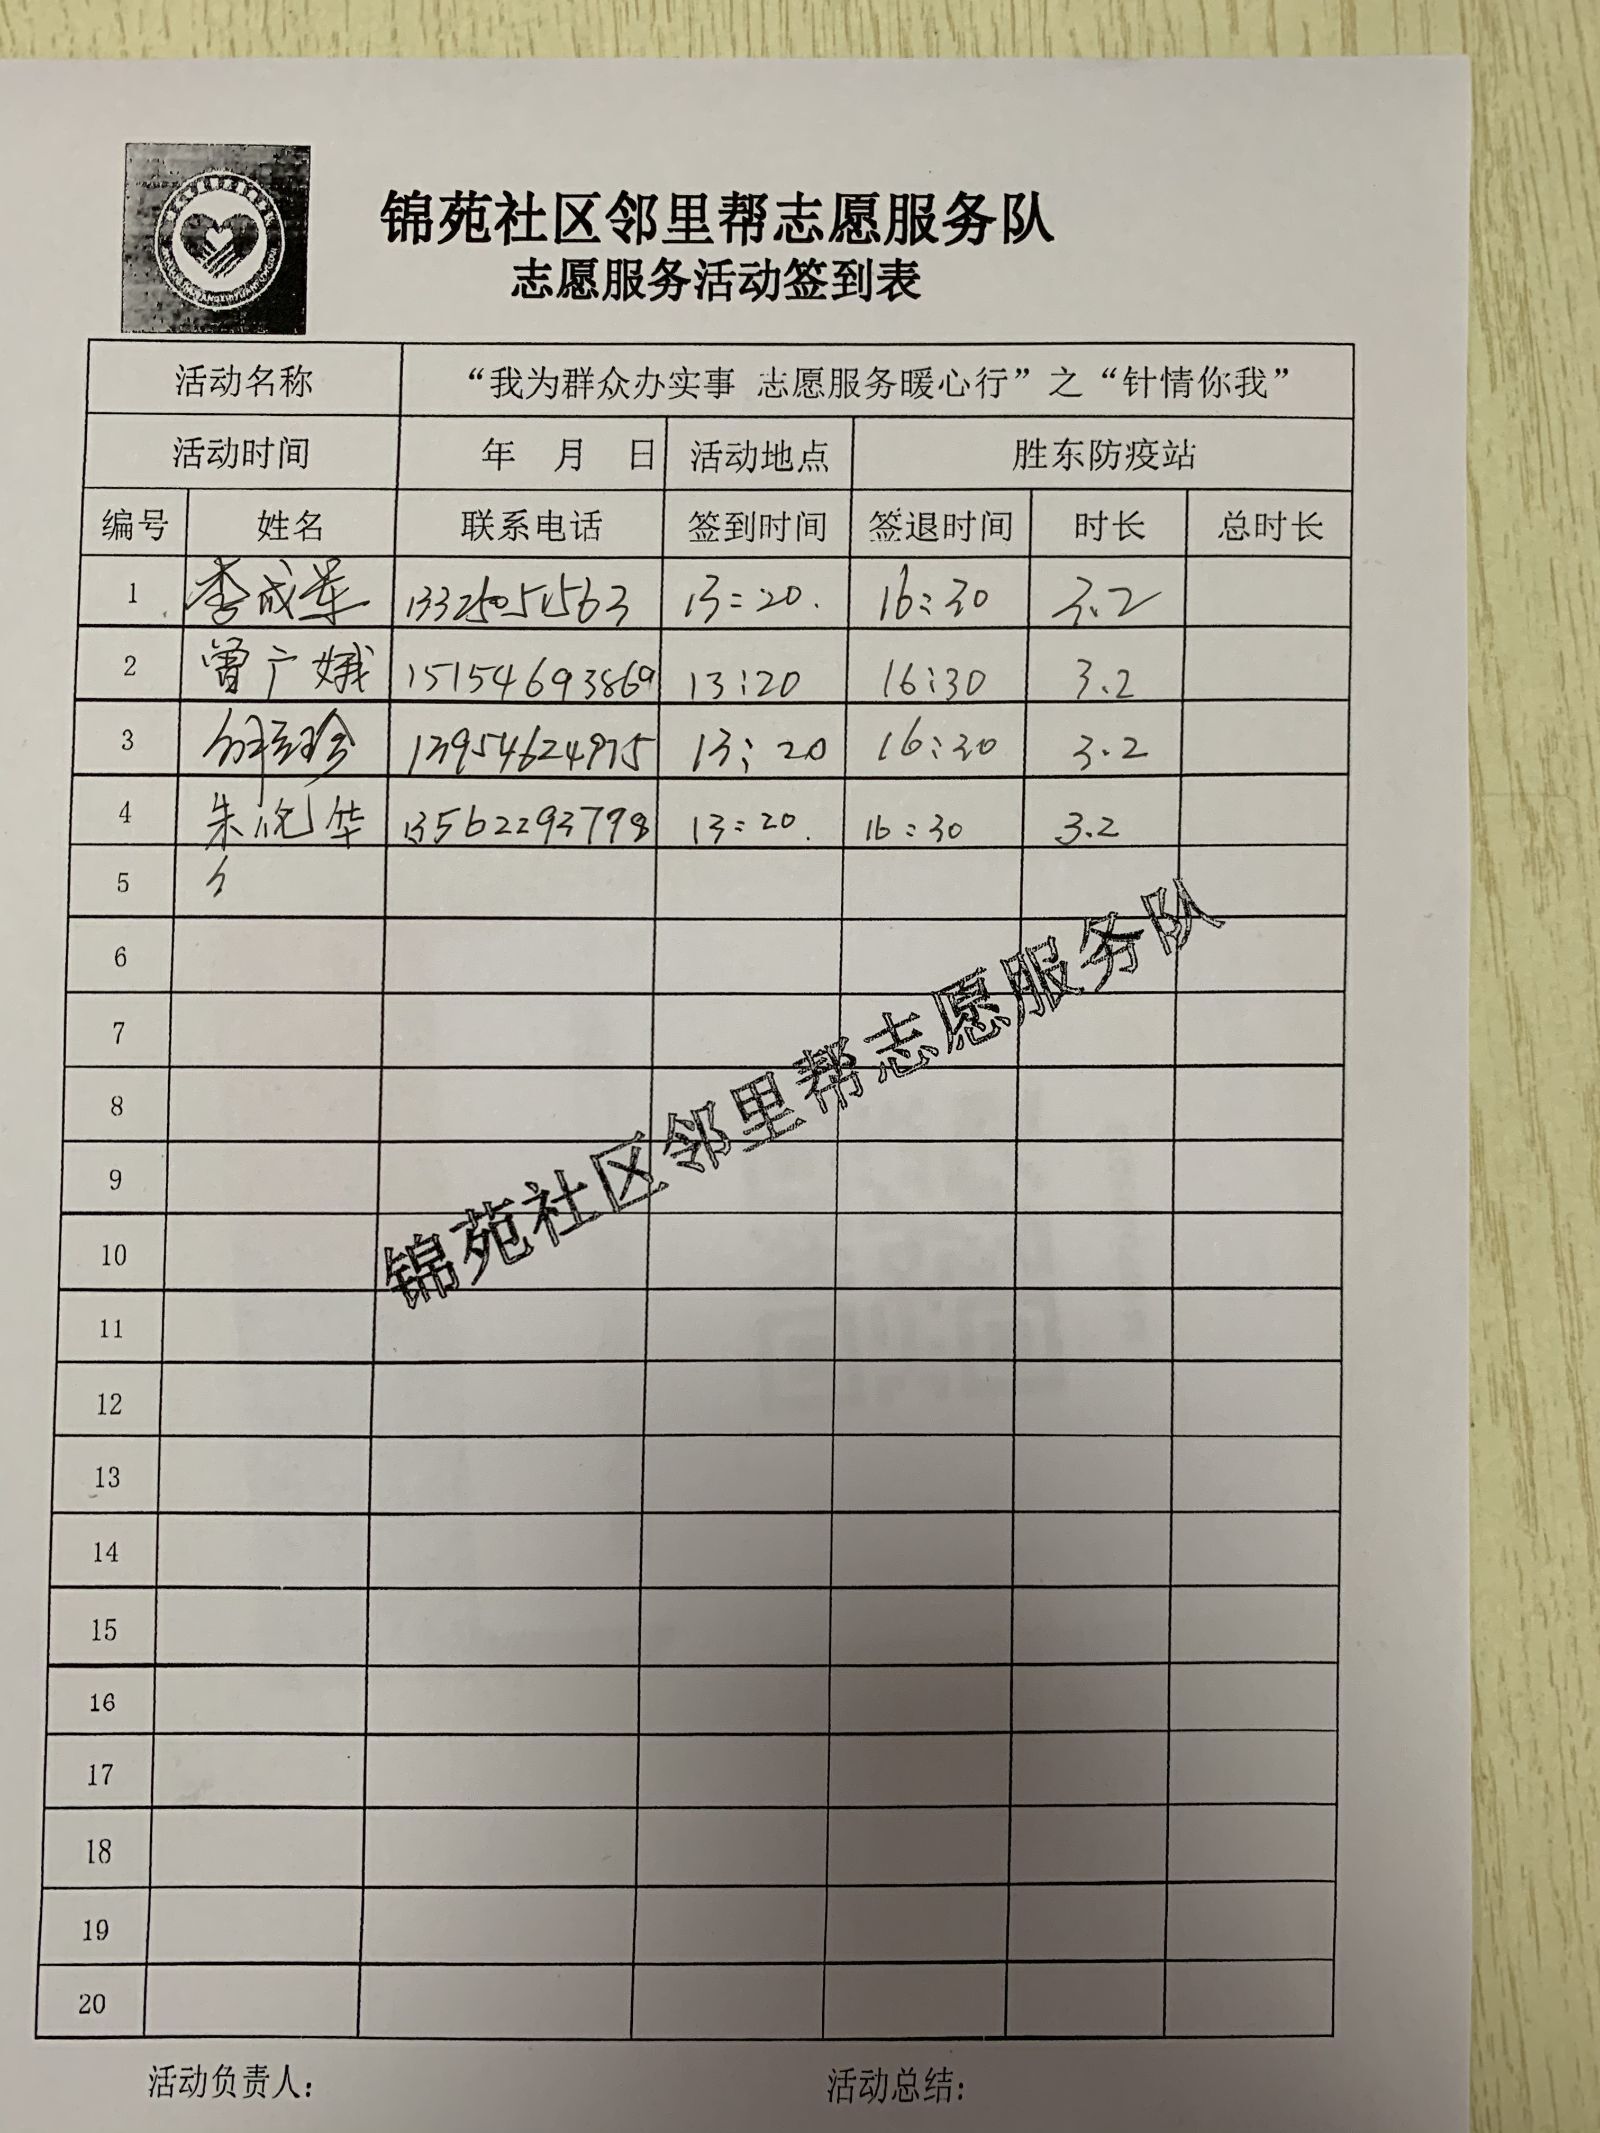 锦苑社区邻里帮志愿服务队
志愿服务活动签到表
活动名称 “我为群众办实事 志愿服务暖心行”之“针情你我”
活动时间 年 月 日 活动地点 胜东防疫站
编号 姓名 联系电话 签到时间 签退时间 时长 总时长
1 李成军 13325051563 13:20. 16:30 3.2
2 曾广娥 15154693869 13:20 16:30 3.2
3 13954624975 13:20 16:30 3.2
4 13562293798 13:20. 16:30 3.2
5
6
7
8
9
10
11
12
13
14
15
16
17
18
19
20
锦苑社区邻里帮志愿服务队
活动负责人: 活动总结: